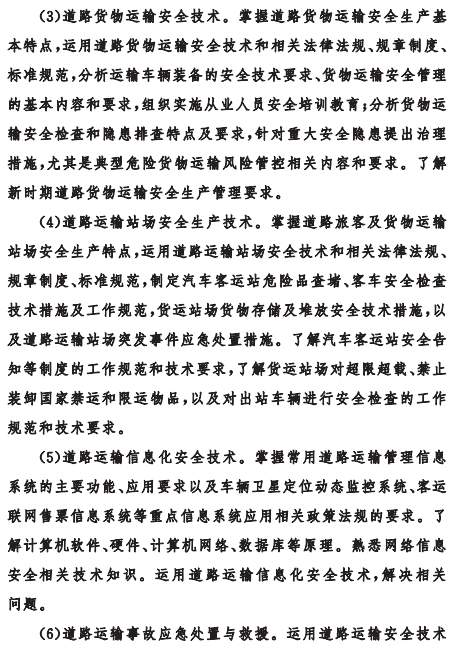 (3)道路货物运输安全技术。掌握道路货物运输安全生产基
本特点,运用道路货物运输安全技术和相关法律法规、规章制度、
标准规范,分析运输车辆装备的安全技术要求、货物运输安全管理
的基本内容和要求,组织实施从业人员安全培训教育;分析货物运
输安全检查和隐患排查特点及要求,针对重大安全隐患提出治理
措施,尤其是典型危险货物运输风险管控相关内容和要求。了解
新时期道路货物运输安全生产管理要求。
(4)道路运输站场安全生产技术。掌握道路旅客及货物运输
站场安全生产特点,运用道路运输站场安全技术和相关法律法规、
规章制度、标准规范,制定汽车客运站危险品查堵、客车安全检查
技术措施及工作规范,货运站场货物存储及堆放安全技术措施,以
及道路运输站场突发事件应急处置措施。了解汽车客运站安全告
知等制度的工作规范和技术要求,了解货运站场对超限超载、禁止
装卸国家禁运和限运物品,以及对出站车辆进行安全检查的工作
规范和技术要求。
(5)道路运输信息化安全技术。掌握常用道路运输管理信息
系统的主要功能、应用要求以及车辆卫星定位动态监控系统、客运
联网售票信息系统等重点信息系统应用相关政策法规的要求。了
解计算机软件、硬件、计算机网络、数据库等原理。熟悉网络信息
安全相关技术知识。运用道路运输信息化安全技术,解决相关
问题。
(6)道路运输事故应急处置与救援。运用道路运输安全技术